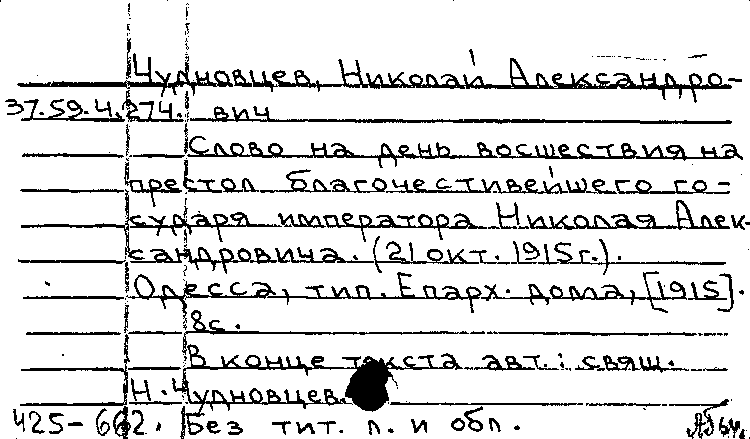 Чудновцев, Николай Александро-
37.59.4.274. вич
Слово на день восшествия на
престол благочестивейшего го-
сударя императора Николая Алек-
сандровича. (21 окт. 1915г.).
Одесса, тип. Епарх. дома, [1915].
8с.
В конце текста авт.: свящ.
Н. Чудновцев.
425-662. Без тит. л. и обл.